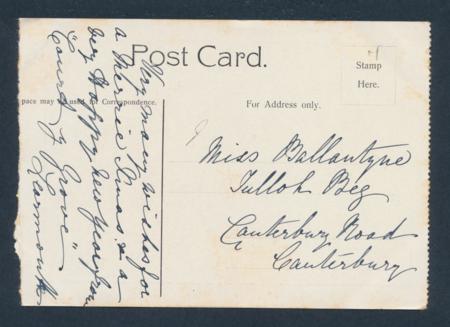 Post Card.
Stamp
Here.
pace may be used for Correspondence.
For Address only.
Very many wishes for
a Merrie Xmas & a
very Happy New Year from
"Courtly Grove"
Learmonth
Miss Ballantyne
Tulloh Beg
Canterbury Road
Canterbury